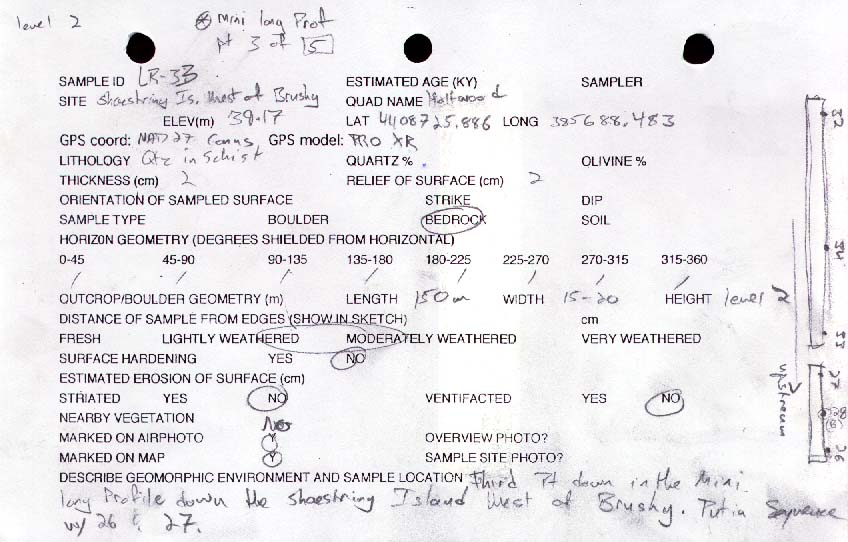 level 2
* Mini long Prof
pt 3 of 5
SAMPLE ID LR-33 ESTIMATED AGE (KY) SAMPLER
SITE Shoestring Is. West of Brushy QUAD NAME
ELEV(m) 39.17 LAT 4408725.886 LONG 385688.483
GPS coord: NAD 27 Conus GPS model: PRO XR
LITHOLOGY Qtz in Schist QUARTZ % OLIVINE %
THICKNESS (cm) 2 RELIEF OF SURFACE (cm) 2
ORIENTATION OF SAMPLED SURFACE STRIKE DIP
SAMPLE TYPE BOULDER BEDROCK SOIL
HORIZON GEOMETRY (DEGREES SHIELDED FROM HORIZONTAL)
0-45 45-90 90-135 135-180 180-225 225-270 270-315 315-360
/ / / / / / / /
OUTCROP/BOULDER GEOMETRY (m) LENGTH 150m WIDTH 15-20 HEIGHT level 2
DISTANCE OF SAMPLE FROM EDGES (SHOW IN SKETCH) cm
FRESH LIGHTLY WEATHERED MODERATELY WEATHERED VERY WEATHERED
SURFACE HARDENING YES NO
ESTIMATED EROSION OF SURFACE (cm)
STRIATED YES NO VENTIFACTED YES NO
NEARBY VEGETATION No
MARKED ON AIRPHOTO Y OVERVIEW PHOTO?
MARKED ON MAP Y SAMPLE SITE PHOTO?
DESCRIBE GEOMORPHIC ENVIRONMENT AND SAMPLE LOCATION Third Pt down in the Mini
long Profile down the shoestring Island West of Brushy. Put in Sequence
w/ 26 & 27.
34
33
27
28
26
upstream